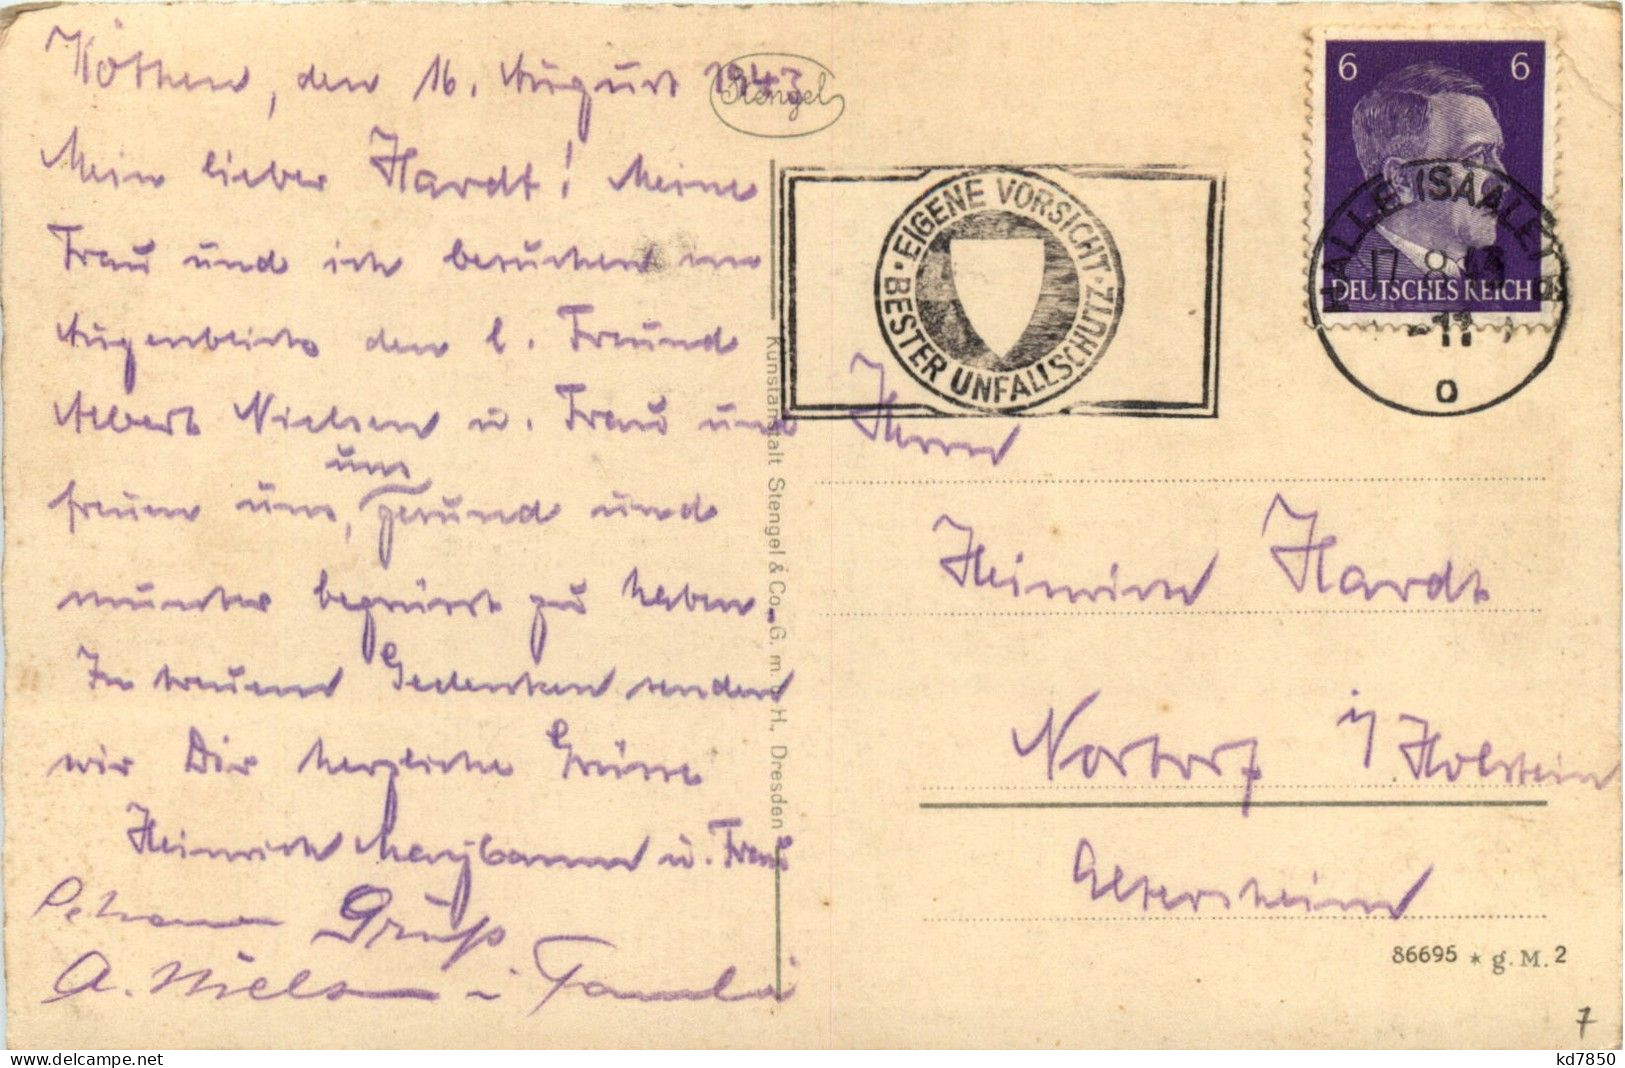 Köthen, den 16. August 1943
Stengel
Mein lieber Hardt! Meine
Frau und ich besuchen im
Augenblick den l. Freund
Albert Nielsen u. Frau und
freuen uns, uns gesund und
munter begrüsst zu haben.
In treuem Gedenken senden
wir Dir herzliche Grüsse
Heinrich u. Frau
Gruß
A. Nielsen Familie
Kunstanstalt Stengel & Co., G. m. b. H., Dresden
EIGENE VORSICHT · BESTER UNFALLSCHUTZ ·
6 6
DEUTSCHES REICH
HALLE (SAALE)
17.8.43
11
o
Herrn
Heinrich Hardt
Nortorf i/Holstein
Altersheim
86695 * g. M. 2
7
kd7850